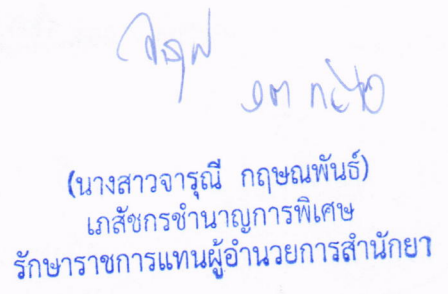 (นางสาวจารุณี กฤษณพันธ์)
เภสัชกรชำนาญการพิเศษ
รักษาราชการแทนผู้อำนวยการสำนักยา